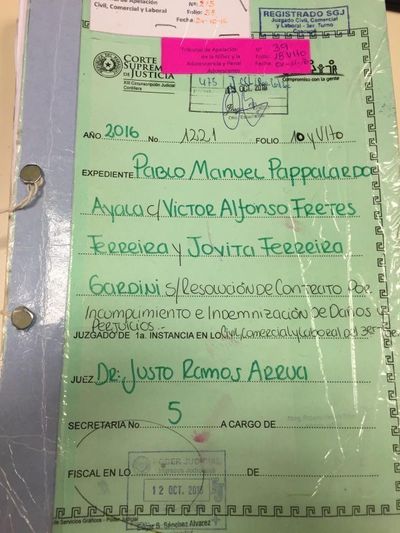 de Apelación
Civil, Comercial y Laboral
Nº 215
Folio: 58
Fecha
REGISTRADO SGJ
Juzgado Civil, Comercial
y Laboral - 3er Turno
Tribunal de Apelación
de la Niñez y la
Adolescencia y Penal
Adolescente
Nº 39
Folio:
Fecha:
CORTE
SUPREMA
DE JUSTICIA
XIII Circunscripción Judicial
Cordillera
Compromiso con la gente
475
OCT. 2016
AÑO 2016 No 1221 FOLIO 10 y Vlto
EXPEDIENTE Pablo Manuel Pappalardo
Ayala c/ Victor Alfonso Fretes
Ferreira y Jovita Ferreira
Gardini s/ Resolución de Contrato por
Incumplimiento e Indemnización de Daños y
Perjuicios.
JUZGADO DE 1a. INSTANCIA EN LO Civil, Comercial y Laboral del 3er
JUEZ Dr: Justo Ramos Arrua
SECRETARIA No 5 A CARGO DE
FISCAL EN LO DE
PODER JUDICIAL
12 OCT. 2016
B. Sánchez Alvarez
de Servicios Gráficos - Poder Judicial